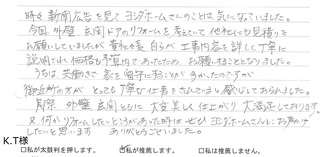 時々 新聞広告を見て ヨシダホームさんのことは 気になっていました。
今回 外壁 玄関ドアのリフォームを考えていて 他社にも見積りを
お願いしていましたが 貴社が 自らが 工事内容を詳しく丁寧に
説明され 価格も予算内であったため、お願いすることとなりました。
うちは 共働きで 家を留守に することが 多かったのですが
御近所の方が とっても丁寧な仕事をされていると 感心しておられました。
月末 外壁 玄関ともに 大変美しく仕上がり 大満足しております。
又、何かリフォームしたいところがあった時は ぜひ ヨシダホームさんに お声かけ
したいと思います ありがとうございました。
K.T様
□私が太鼓判を押します。 □私が推薦します。 □私は推薦しません。